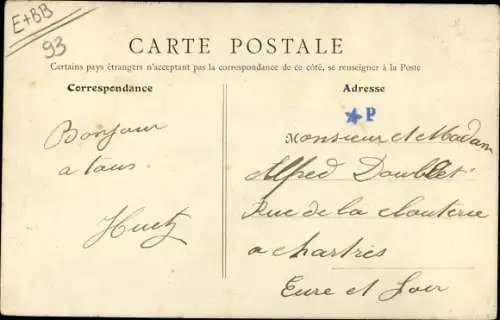 E+BB
93
CARTE POSTALE
Certains pays étrangers n'acceptant pas la correspondance de ce côté, se renseigner à la Poste
Correspondance
Bonjour
a tous
Huet
Adresse
★P
Monsieur et Madam
Alfred Doublet
Rue de la clouterie
a chartres
Eure et Loir